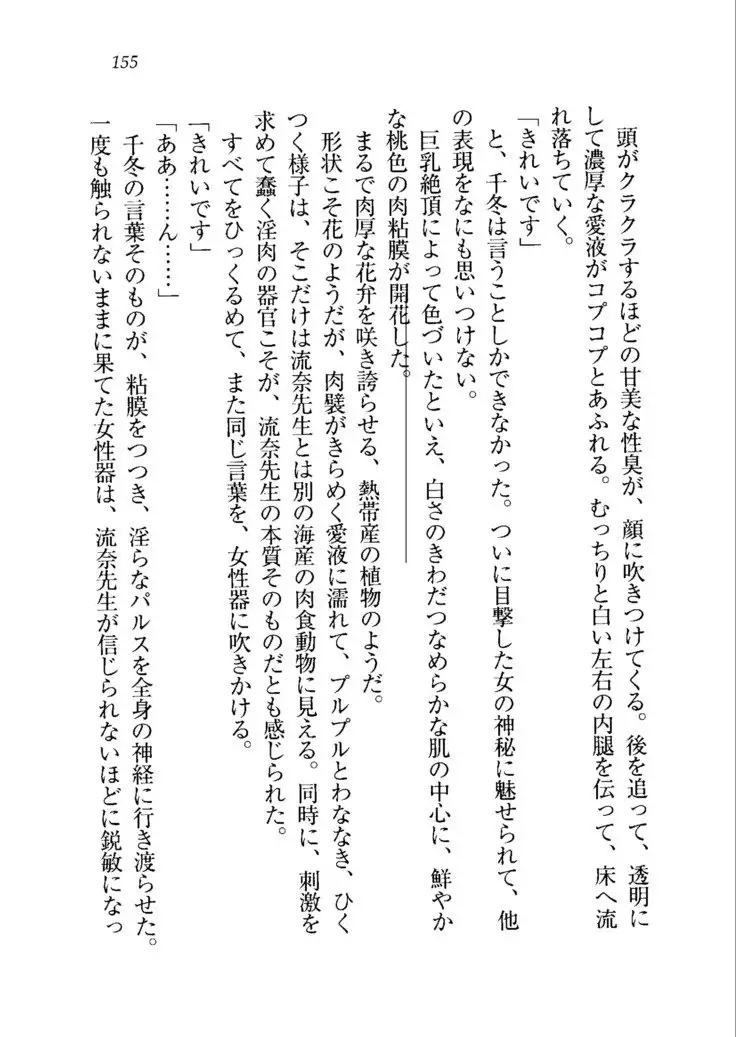 155
頭がクラクラするほどの甘美な性臭が、顔に吹きつけてくる。後を追って、透明に
して濃厚な愛液がコプコプとあふれる。むっちりと白い左右の内腿を伝って、床へ流
れ落ちていく。
「きれいです」
と、千冬は言うことしかできなかった。ついに目撃した女の神秘に魅せられて、他
の表現をなにも思いつけない。
巨乳絶頂によって色づいたといえ、白さのきわだつなめらかな肌の中心に、鮮やか
な桃色の肉粘膜が開花した。
まるで肉厚な花弁を咲き誇らせる、熱帯産の植物のようだ。
形状こそ花のようだが、肉襞がきらめく愛液に濡れて、プルプルとわななき、ひく
つく様子は、そこだけは流奈先生とは別の海産の肉食動物に見える。同時に、刺激を
求めて蠢く淫肉の器官こそが、流奈先生の本質そのものだとも感じられた。
すべてをひっくるめて、また同じ言葉を、女性器に吹きかける。
「きれいです」
「ああ……ん……」
千冬の言葉そのものが、粘膜をつつき、淫らなパルスを全身の神経に行き渡らせた。
一度も触られないままに果てた女性器は、流奈先生が信じられないほどに鋭敏になっ